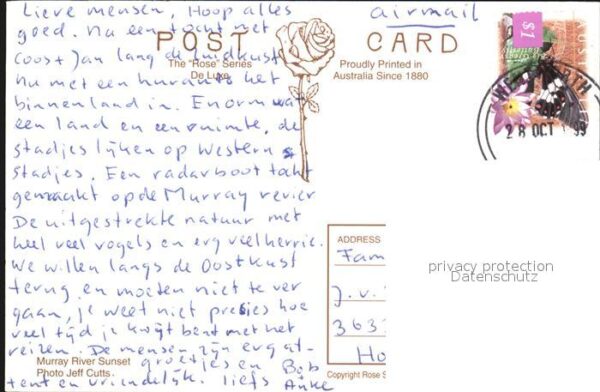 Lieve mensen, Hoop alles
goed. Na een tocht met
Coos + Jan lang de zuidkust
nu met een huurauto het
binnenland in. Enorm wat
een land en een ruimte, de
stadjes lijken op Western
stadjes. Een radarboot tocht
gemaakt op de Murray revier
De uitgestrekte natuur met
heel veel vogels en erg veel herrie.
We willen langs de Oostkust
terug en moeten niet te ver
gaan, je weet niet precies hoe
veel tijd je kwijt bent met het
reizen. De mensen zijn erg at-
tent en vriendelijk.
groetjes en
liefs
Bob
Anke
airmail
POST CARD
The "Rose" Series
De Luxe
Proudly Printed in
Australia Since 1880
$1
AUSTRALIA
28 OCT
99
ADDRESS
Fam
J.v.
363
Ho
privacy protection
Datenschutz
Murray River Sunset
Photo Jeff Cutts
Copyright Rose S